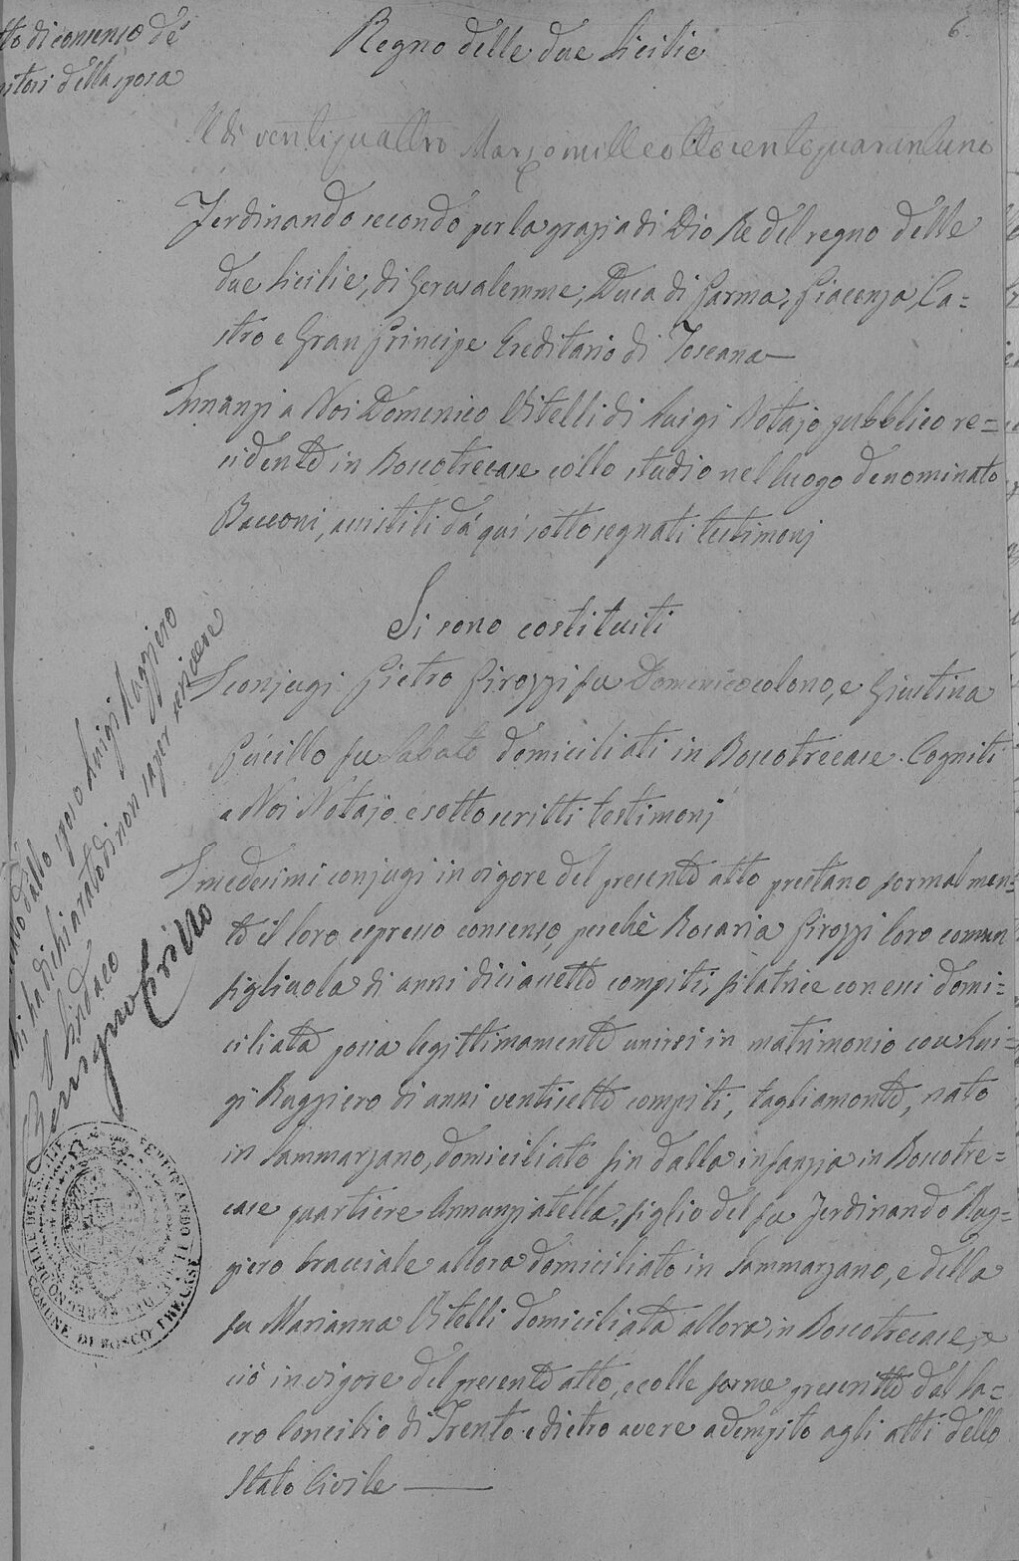 tto di consenso de'
nitori della sposa
6
Regno delle due Sicilie
Il di ventiquattro Marzo milleottocentoquarantuno
Ferdinando secondo per la grazia di Dio Re del regno delle
due Sicilie, di Gerusalemme, Duca di Parma, Piacenza, Ca=
stro e Gran Principe Ereditario di Toscana
Innanzi a Noi Domenico Vitelli di Luigi Notajo pubblico re=
sidente in Boscotrecase collo studio nel luogo denominato
assistiti da' qui sotto segnati testimonj
Si sono costituiti
I conjugi Pietro Pirozzi fu Domenico colono, e Giustina
fu Sabato domiciliati in Boscotrecase. Cogniti
a Noi Notajo e sotto scritti testimonj
I medesimi conjugi in vigore del presente atto prestano formalmen=
te il loro espresso consenso, perchè Rosaria Pirozzi loro comun
figliuola di anni diciasette compiti, filatrice con essi domi=
ciliata possa legittimamente unirsi in matrimonio con Lui=
gi Ruggiero di anni ventisette compiti, tagliamonte, nato
in Sammarzano, domiciliato fin dalla infanzia in Boscotre=
case quartiere Annunziatella, figlio del fu Ferdinando Rug=
giero bracciale allora domiciliato in Sammarzano, e della
fu Marianna Vitelli domiciliata allora in Boscotrecase, e
ciò in vigore del presente atto, e colle forme presentte dal Sa=
cro Concilio di Trento e dietro avere adempito agli atti dello
Stato Civile
dallo sposo Luigi Ruggiero
ha dichiarato di non saper scrivere
Il Sindaco
Cirillo
COMUNE DI BOSCO TRE CASE
FERDINANDO II